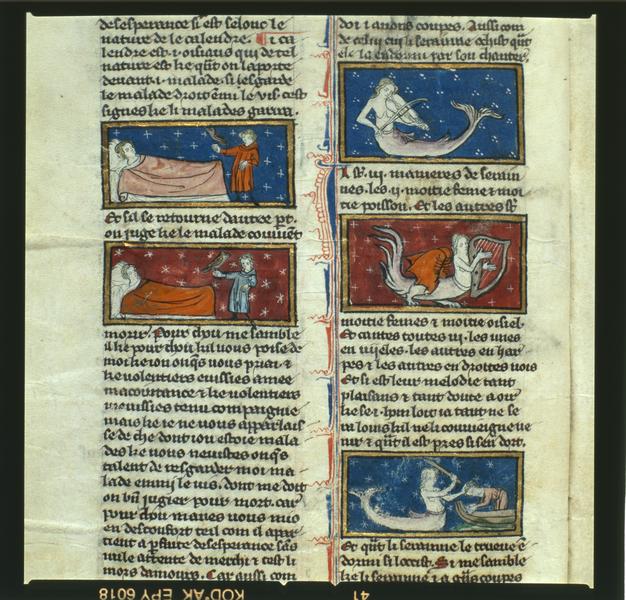 desesperance si est selonc le
nature de le calendre. Li ca
lendre est .i. oisiaus qui de tel
nature est ke qũt on la porte
devant .i. malade. si lesgarde
le malade droit emi le vis. cest
signes ke li malades garra.
Et sil se retourne dautre pt.
on juge ke le malade couvient
morir. Pour chou me samble
il ke pour chou kil vous poise de
moi ke iou onq̃s vous priai &
ke volentiers eussies amee
macointance & ke volentiers
mouissies tenu compaignie
mais ke ie ne vous apparlais
se de che dont iou estoie mala
des ke vous neuistes onq̃s
talent de resgarder moi ma
lade emmi le vis. dont me doit
on bñ jugier pour mort. car
pour chou maves vous mis
en desconfort teil com il apar
tient a
desesperance sãs
nule atente de merchi & cest li
mors damours. Car aussi com
doi i andris coupes. Aussi com
de celui cui li seraine ochist qũt
ele la endormi par son chanter.
I sũt .iij. manieres de serain
nes. les .ij. moitie feme & moi
tie poisson. Et les autres sũt
moitie femes & moitie oisiel.
Et cantes toutes .iij. les unes
en vieles. les autres en har
pes & les autres en droites vois
Et si est leur melodie tant
plaisans & tant douce a oir
ke se .i. hom loit ia tant ne se
ra lons kil ne li couviengne ve
nir & qũt il est pres si sen dort.
Et qũt li seraine le trueve ẽ
dormi si locist. Si me samble
ke li seraine i a grãs coupes
KODAK EPY 6018
41